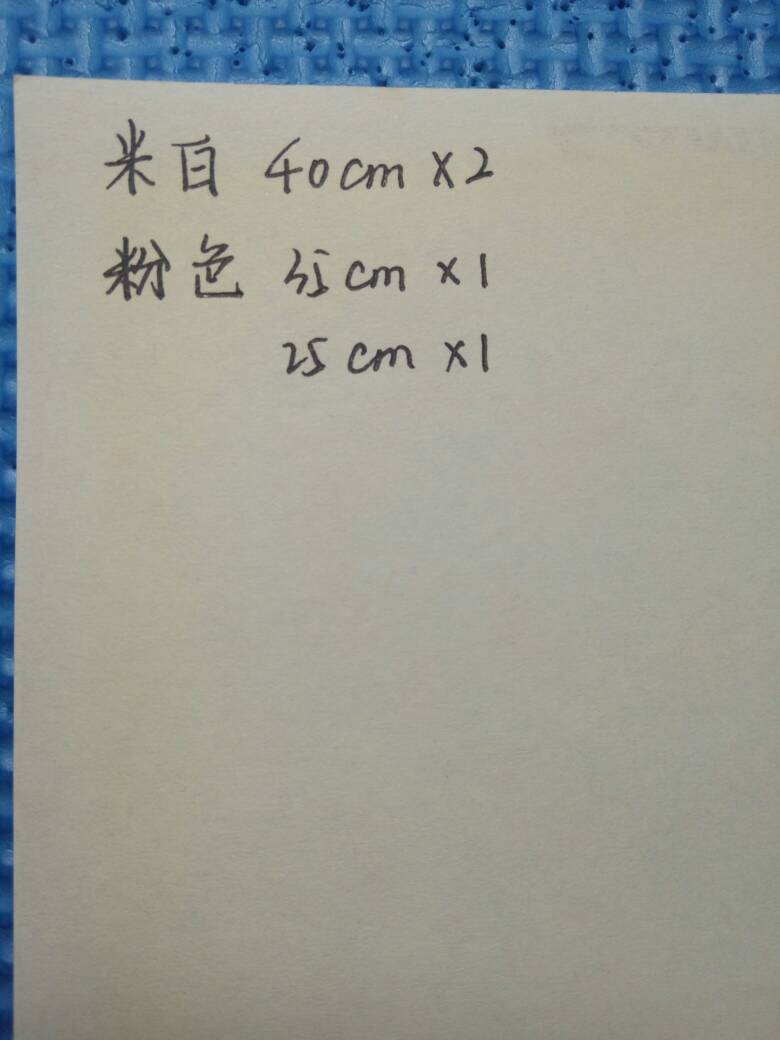 米白 40cm x2
粉色 35cm x1
25cm x1